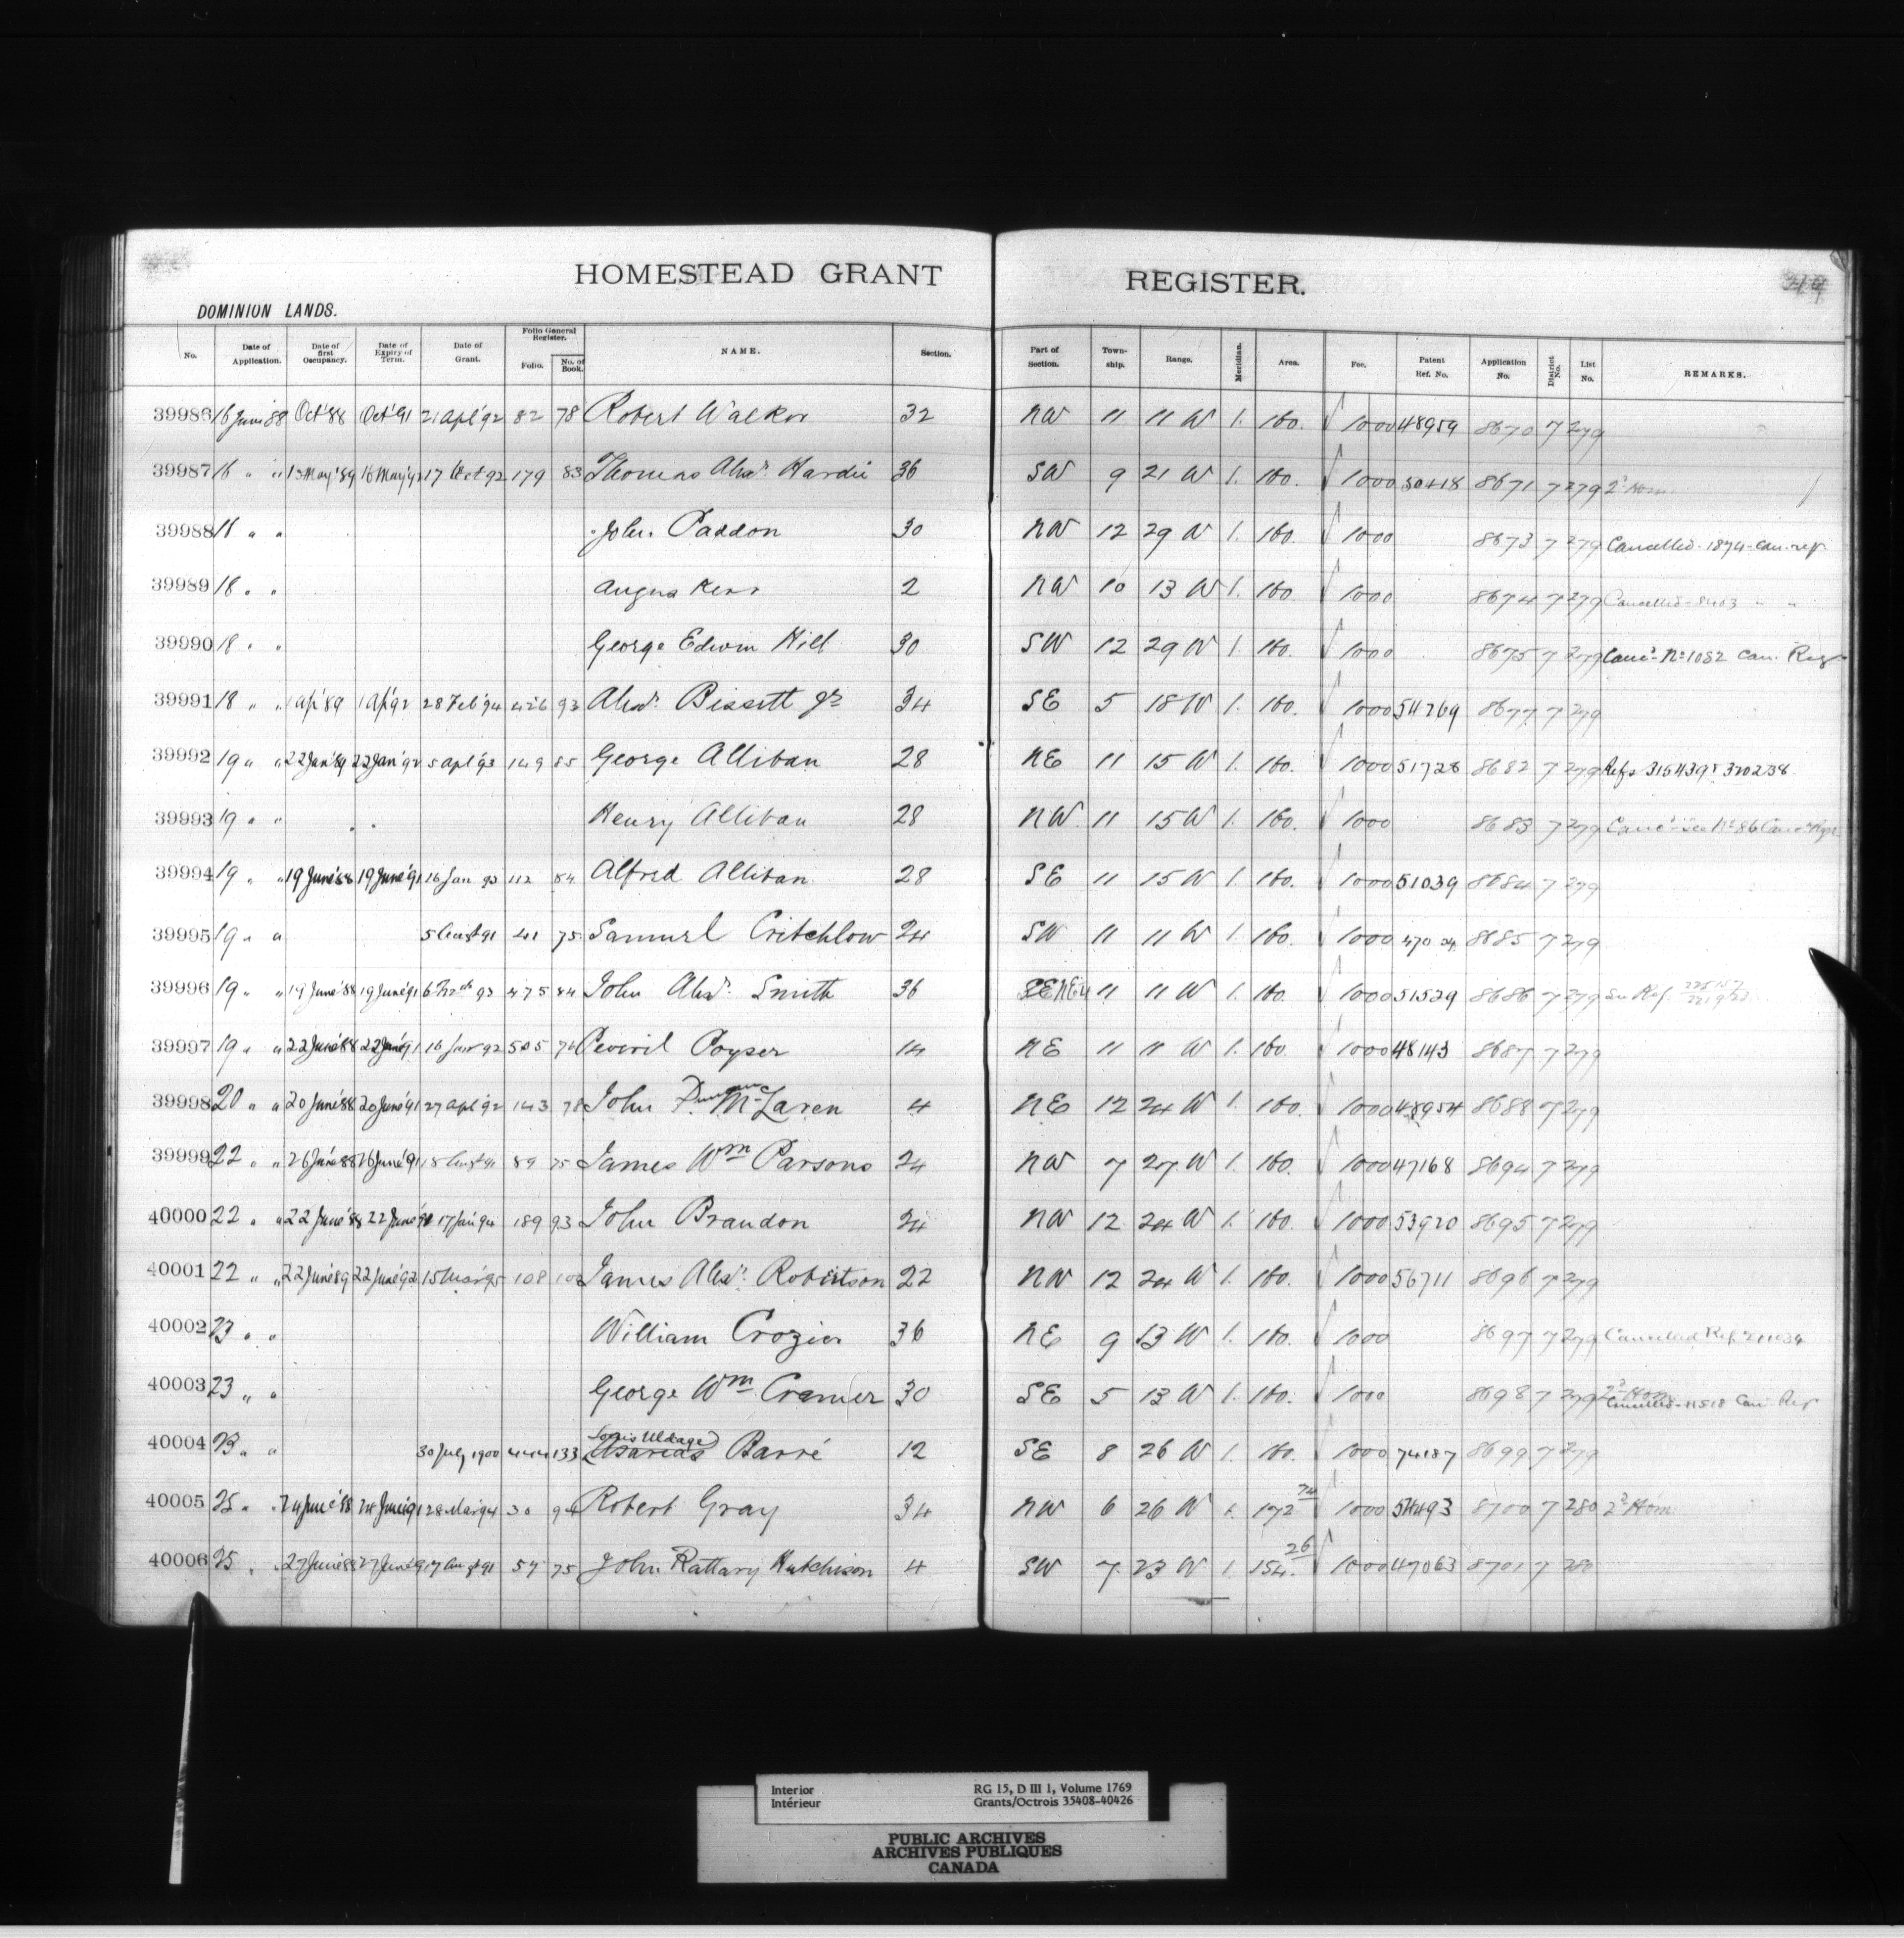 HOMESTEAD GRANT REGISTER.
DOMINION LANDS.
No. Date of Application. Date of first Occupancy. Date of Expiry of Term. Date of Grant. Folio General Register. Folio. No. of Book. NAME. Section. Part of Section. Town-ship. Range. Meridian. Area. Fee. Patent Ref. No. Application No. District No. List No. REMARKS.
39986 16 June 88 Oct '88 Oct '91 21 Apl '92 82 78 Robert Walker 32 NW 11 11 W 1. 160. 1000 48959 8670 7 279
39987 16 " " 13 May '89 16 May '92 17 Oct 92 179 83 Thomas Alexr. Hardie 36 SW 9 21 W 1. 160. 1000 50418 8671 7 279 2d Hom.
39988 16 " " John Paddon 30 NW 12 29 W 1. 160. 1000 8673 7 279 Cancelled - 1874 - can. reg.
39989 18 " " Angus Kerr 2 NW 10 13 W 1. 160. 1000 8674 7 279 Cancelled - 8463 " "
39990 18 " " George Edwin Hill 30 SW 12 29 W 1. 160. 1000 8675 7 279 Canc'd No 1082 Can. Reg.
39991 18 " " 1 Ap '89 1 Ap '92 28 Feb '94 426 93 Alexr. Bissett Jr 34 SE 5 18 W 1. 160. 1000 54269 8677 7 279
39992 19 " " 22 Jan '89 22 Jan '92 5 Apl '93 149 85 George Alliban 28 NE 11 15 W 1. 160. 1000 51728 8682 7 279 Refs 315439 & 320238
39993 19 " " Henry Alliban 28 NW 11 15 W 1. 160. 1000 8683 7 279 Canc'd See No 86 Canc. Regr
39994 19 " " 19 June '88 19 June '91 16 Jan 93 112 84 Alfred Alliban 28 SE 11 15 W 1. 160. 1000 51039 8684 7 279
39995 19 " " 5 Augst 91 41 75 Samuel Critchlow 24 SW 11 11 W 1. 160. 1000 47024 8685 7 279
39996 19 " " 19 June '88 19 June '91 6 Mch 93 475 84 John Alexr. Smith 36 NE 11 11 W 1. 160. 1000 51529 8686 7 279 See Ref.
39997 19 " " 22 June '88 22 June '91 16 Jan 92 505 76 Peveril Poyser 14 NE 11 11 W 1. 160. 1000 48143 8687 7 279
39998 20 " " 20 June '88 20 June '91 27 Apl '92 143 78 John Duncan McLaren 4 NE 12 24 W 1. 160. 1000 48954 8688 7 279
39999 22 " " 26 June '88 26 June '91 18 Augst 91 89 75 James Wm Parsons 24 NW 7 27 W 1. 160. 1000 47168 8694 7 279
40000 22 " " 22 June '88 22 June '91 17 Jan '94 189 93 John Brandon 24 NW 12 24 W 1. 160. 1000 53920 8695 7 279
40001 22 " " 22 June '89 22 June '92 15 Mar '95 108 James Alexr. Robertson 22 NW 12 24 W 1. 160. 1000 56711 8696 7 279
40002 23 " " William Crozier 36 NE 9 13 W 1. 160. 1000 8697 7 279 Cancelled Ref 211034
40003 23 " " George Wm Cramer 30 SE 5 13 W 1. 160. 1000 8698 7 279 2d Hom. Cancelled - 11518 Can. Reg.
40004 23 " " 30 July 1900 444 133 Louis Barré 12 SE 8 26 W 1. 160. 1000 74187 8699 7 279
40005 25 " " 24 June '88 24 June '91 28 Mar 94 30 94 Robert Gray 34 NW 6 26 W 1. 172 70 1000 54493 8700 7 280 2d Hom.
40006 25 " " 27 June 88 27 June 91 7 Augst 91 57 75 John Rattary Hutchison 4 SW 7 23 W 1. 154. 26 1000 47063 8701 7 280
Interior RG 15, D III 1, Volume 1769
Intérieur Grants/Octrois 35408-40426
PUBLIC ARCHIVES
ARCHIVES PUBLIQUES
CANADA